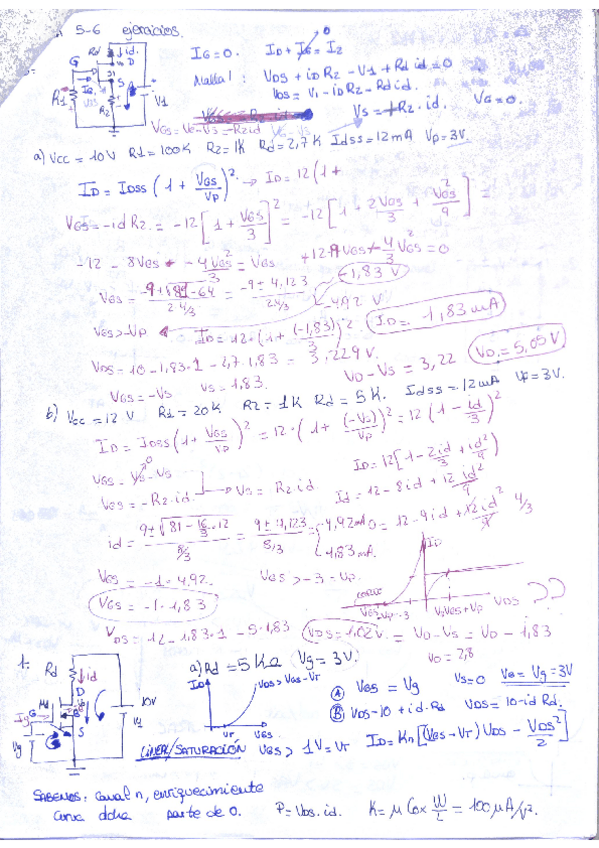 5-6 ejercicios.
IG=0. ID + IG = I2
Malla 1: VDS + iD R2 - V1 + Rd id = 0
VDS = V1 - iD R2 - Rd id.
VS = R2 . id. VG=0.
VGS = VG - VS = -R2 id
a) Vcc = 10V R1 = 100K R2 = 1K Rd = 2,7K Idss = 12mA Vp = 3V.
ID = IDSS (1 + VGS/VP)² → ID = 12(1 +
VGS = -id R2 = -12[1 + VGS/3]² = -12[1 + 2VGS/3 + VGS²/9]
-12 - 8VGS - 4VGS²/3 = VGS
VGS = = -9 ± 4,123 / 2·4/3
-1,83 V
-4,92 V
VGS > -VP ID = 12·(1 + (-1,83)/3)² ID = 1,83 mA
VDS = 10 - 1,83·1 - 2,7·1,83 = 3,229 V. VD - VS = 3,22 VD = 5,05 V
VGS = -VS VS = 1,83.
b) Vcc = 12 V R1 = 20K R2 = 1K Rd = 5K. Idss = 12mA VP = 3V.
ID = IDSS (1 + VGS/VP)² = 12·(1 + (-VS)/VP)² = 12(1 - id/3)²
ID = 12[1 - 2id/3 + id²/9)
VGS = VG - VS
VGS = -R2·id VS = R2·id.
id = 12 - 8id + 12 id²/9
id = 9 ± √81 - 16/3·12 / 8/3 = 9 ± 4,123 / 8/3
4,92mA
1,83 mA.
0 = 12 - 9id + 12id²/9 4/3
VGS = -1·4,92. VGS > -3 - VP.
VGS = -1·1,83
ID
VDS
VDS = 12 - 1,83·1 - 5·1,83 VDS = 1,02V. = VD - VS = VD - 1,83
VD = 2,8
1= Rd id
a) Rd = 5KΩ Vg = 3V.
ID VDS > VGS - VT
VT VGS
D
G
S
Ig
Vg
10V
V1
(A) VGS = Vg VS=0 VGS = Vg = 3V
(B) VDS - 10 + id·Rd VDS = 10 - id Rd.
LINEAL/SATURACIÓN VGS > 1V = VT ID = Kn[(VGS - VT) VDS - VDS²/2]
SABEMOS: canal n, enriquecimiento
curva dcha parte de 0. P = VDS·id. K = μ Cox W/L = 100 μA/V².